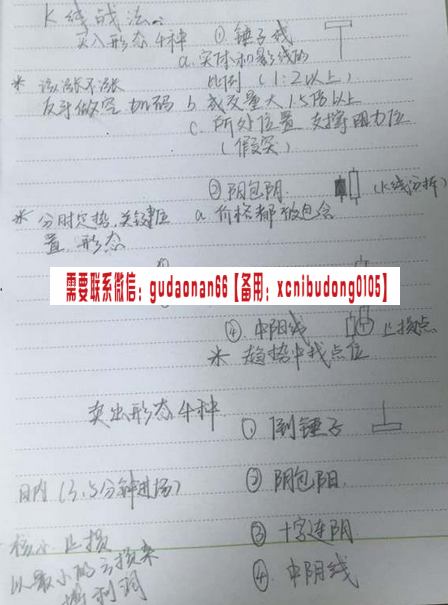 K线战法
买入形态4种 ① 锤子线
a. 实体和影线的
比例（1:2以上）
* 该涨不涨
反手做空 加码
b 成交量大1.5倍以上
c. 所处位置 支撑阻力位
（假突）
② 阴包阴 （K线分析）
* 分时定势，关键位
置 形态
a 价格都被包含
需要联系微信：gudaonan66【备用：xcnibudong0105】
④ 中阳线 止损点
* 趋势中找点位
卖出形态4种
① 倒锤子
日内（3.5分钟进场）
② 阴包阳
核心 止损
③ 十字连阴
以最小的亏损来
利润
④ 中阴线